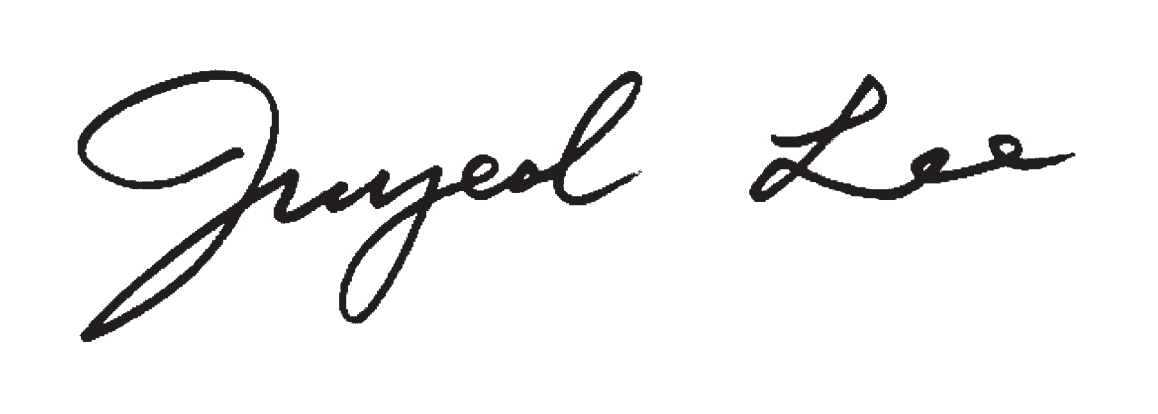 Juyeol Lee